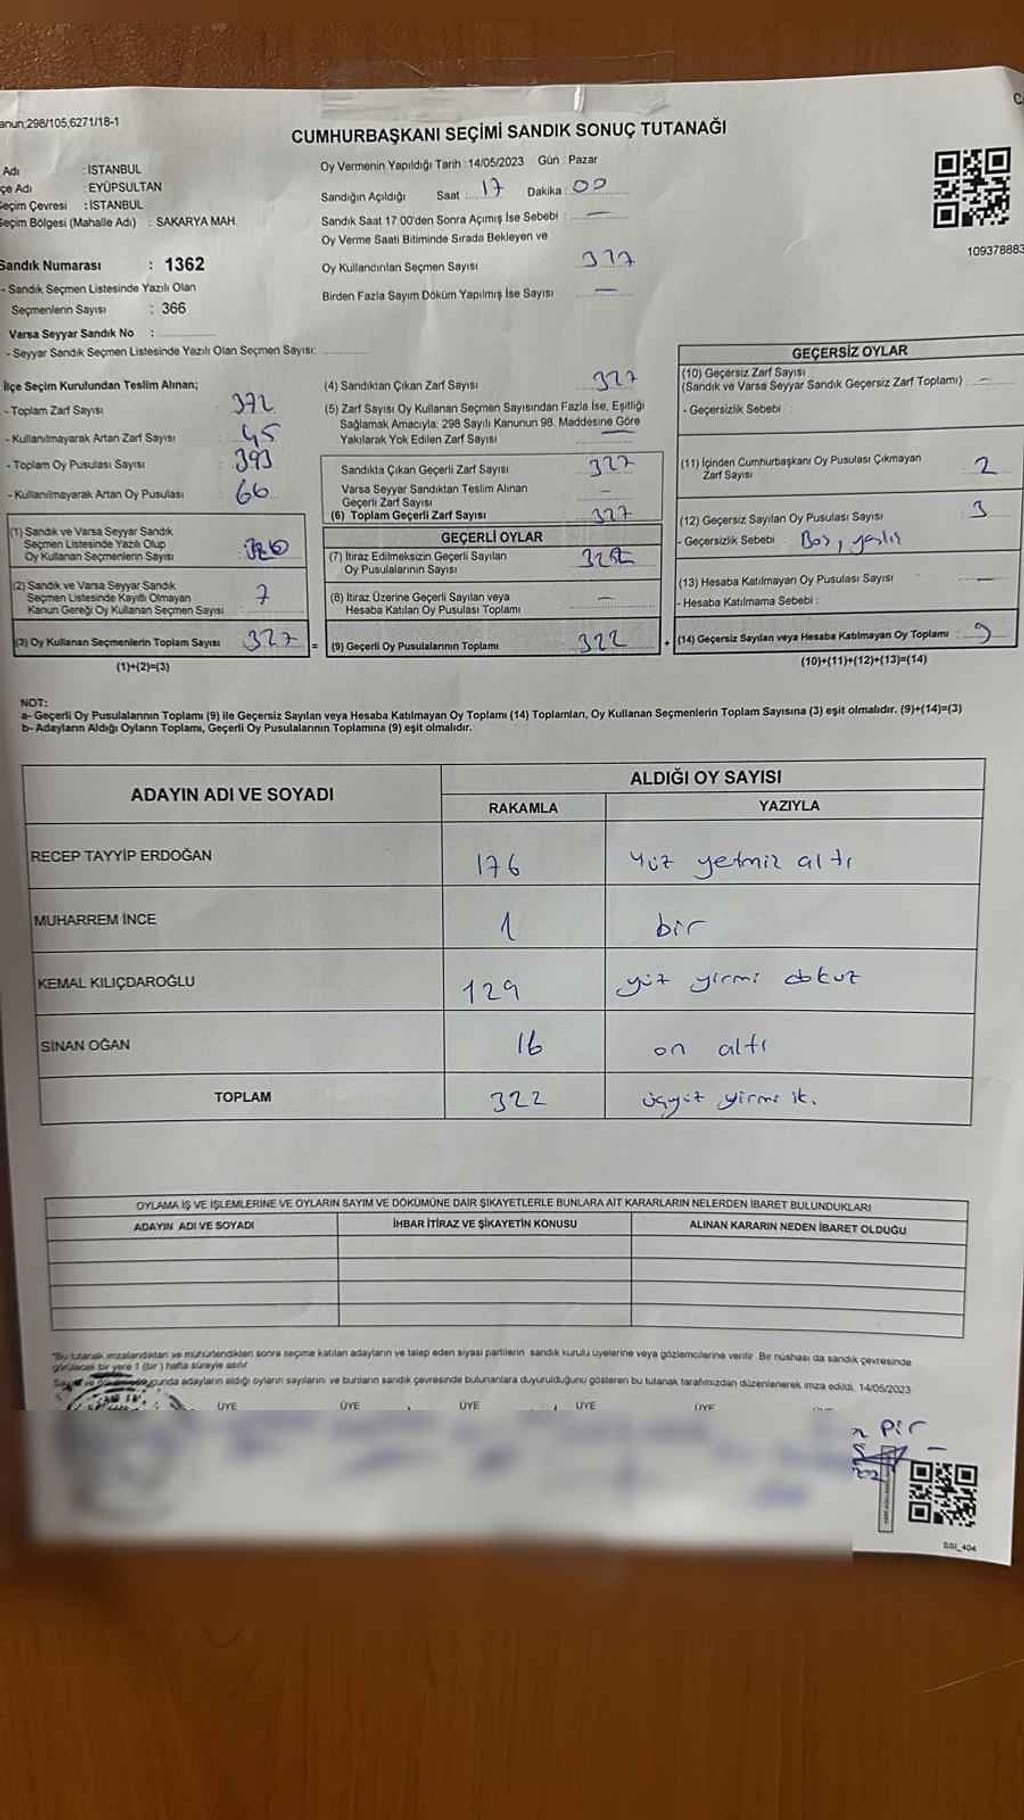 anun;298/105,6271/18-1
CUMHURBAŞKANI SEÇİMİ SANDIK SONUÇ TUTANAĞI
Adı : İSTANBUL
çe Adı : EYÜPSULTAN
Seçim Çevresi : İSTANBUL
Seçim Bölgesi (Mahalle Adı) : SAKARYA MAH.
Sandık Numarası : 1362
- Sandık Seçmen Listesinde Yazılı Olan
Seçmenlerin Sayısı : 366
Varsa Seyyar Sandık No :
- Seyyar Sandık Seçmen Listesinde Yazılı Olan Seçmen Sayısı:
Oy Vermenin Yapıldığı Tarih :14/05/2023 Gün : Pazar
Sandığın Açıldığı Saat : 17 Dakika : 00
Sandık Saat 17:00'den Sonra Açımış İse Sebebi : —
Oy Verme Saati Bitiminde Sırada Bekleyen ve
Oy Kullandırılan Seçmen Sayısı
Birden Fazla Sayım Döküm Yapılmış İse Sayısı —
109378883
İlçe Seçim Kurulundan Teslim Alınan;
- Toplam Zarf Sayısı : 372
- Kullanılmayarak Artan Zarf Sayısı : 45
- Toplam Oy Pusulası Sayısı : 393
- Kullanılmayarak Artan Oy Pusulası : 66
(1) Sandık ve Varsa Seyyar Sandık
Seçmen Listesinde Yazılı Olup
Oy Kullanan Seçmenlerin Sayısı
(2) Sandık ve Varsa Seyyar Sandık
Seçmen Listesinde Kayıtlı Olmayan
Kanun Gereği Oy Kullanan Seçmen Sayısı 7
(3) Oy Kullanan Seçmenlerin Toplam Sayısı 327 =
(1)+(2)=(3)
(4) Sandıktan Çıkan Zarf Sayısı 327
(5) Zarf Sayısı Oy Kullanan Seçmen Sayısından Fazla İse, Eşitliği
Sağlamak Amacıyla; 298 Sayılı Kanunun 98. Maddesine Göre
Yakılarak Yok Edilen Zarf Sayısı —
Sandıkta Çıkan Geçerli Zarf Sayısı 327
Varsa Seyyar Sandıktan Teslim Alınan
Geçerli Zarf Sayısı —
(6) Toplam Geçerli Zarf Sayısı 327
GEÇERLİ OYLAR
(7) İtiraz Edilmeksizin Geçerli Sayılan
Oy Pusulalarının Sayısı
(8) İtiraz Üzerine Geçerli Sayılan veya
Hesaba Katılan Oy Pusulası Toplamı —
(9) Geçerli Oy Pusulalarının Toplamı 322 +
GEÇERSİZ OYLAR
(10) Geçersiz Zarf Sayısı
(Sandık ve Varsa Seyyar Sandık Geçersiz Zarf Toplamı) : —
- Geçersizlik Sebebi :
(11) İçinden Cumhurbaşkanı Oy Pusulası Çıkmayan
Zarf Sayısı 2
(12) Geçersiz Sayılan Oy Pusulası Sayısı 3
- Geçersizlik Sebebi : Boş,
(13) Hesaba Katılmayan Oy Pusulası Sayısı —
- Hesaba Katılmama Sebebi :
(14) Geçersiz Sayılan veya Hesaba Katılmayan Oy Toplamı :
(10)+(11)+(12)+(13)=(14)
NOT:
a- Geçerli Oy Pusulalarının Toplamı (9) ile Geçersiz Sayılan veya Hesaba Katılmayan Oy Toplamı (14) Toplamları, Oy Kullanan Seçmenlerin Toplam Sayısına (3) eşit olmalıdır. (9)+(14)=(3)
b- Adayların Aldığı Oyların Toplamı, Geçerli Oy Pusulalarının Toplamına (9) eşit olmalıdır.
ADAYIN ADI VE SOYADI ALDIĞI OY SAYISI
RAKAMLA YAZIYLA
RECEP TAYYİP ERDOĞAN 176 Yüz yetmiz altı
MUHARREM İNCE 1 bir
KEMAL KILIÇDAROĞLU 129 yüz yirmi dokuz
SİNAN OĞAN 16 on altı
TOPLAM 322 üçyüz yirmi iki
OYLAMA İŞ VE İŞLEMLERİNE VE OYLARIN SAYIM VE DÖKÜMÜNE DAİR ŞİKAYETLERLE BUNLARA AİT KARARLARIN NELERDEN İBARET BULUNDUKLARI
ADAYIN ADI VE SOYADI İHBAR İTİRAZ VE ŞİKAYETİN KONUSU ALINAN KARARIN NEDEN İBARET OLDUĞU
"Bu tutanak imzalandıktan ve mühürlendikten sonra seçime katılan adayların ve talep eden siyasi partilerin sandık kurulu üyelerine veya gözlemcilerine verilir. Bir nüshası da sandık çevresinde
görülecek bir yere 1 (bir) hafta süreyle asılır.
adayların aldığı oyların sayılarını ve bunların sandık çevresinde bulunanlara duyurulduğunu gösteren bu tutanak tarafımızdan düzenlenerek imza edildi. 14/05/2023
ÜYE ÜYE ÜYE ÜYE ÜYE
Pir
SSI_404